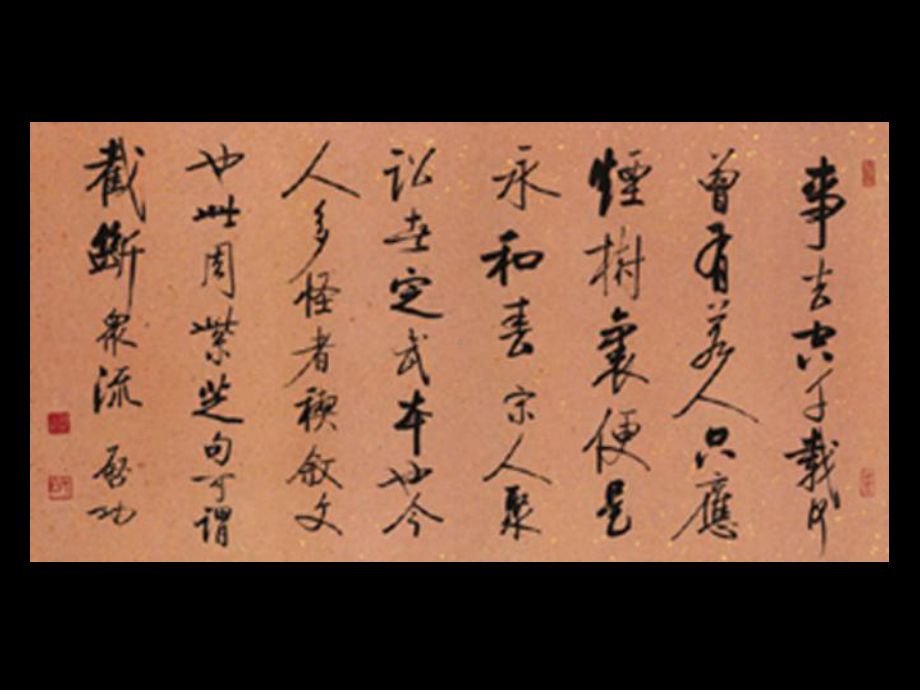 事去空千載何
曾有若人只應
煙樹裏便是
永和春宋人聚
訟者定武本也今
人多怪者禊敘文
也此周紫芝句可謂
截斷衆流 啓功